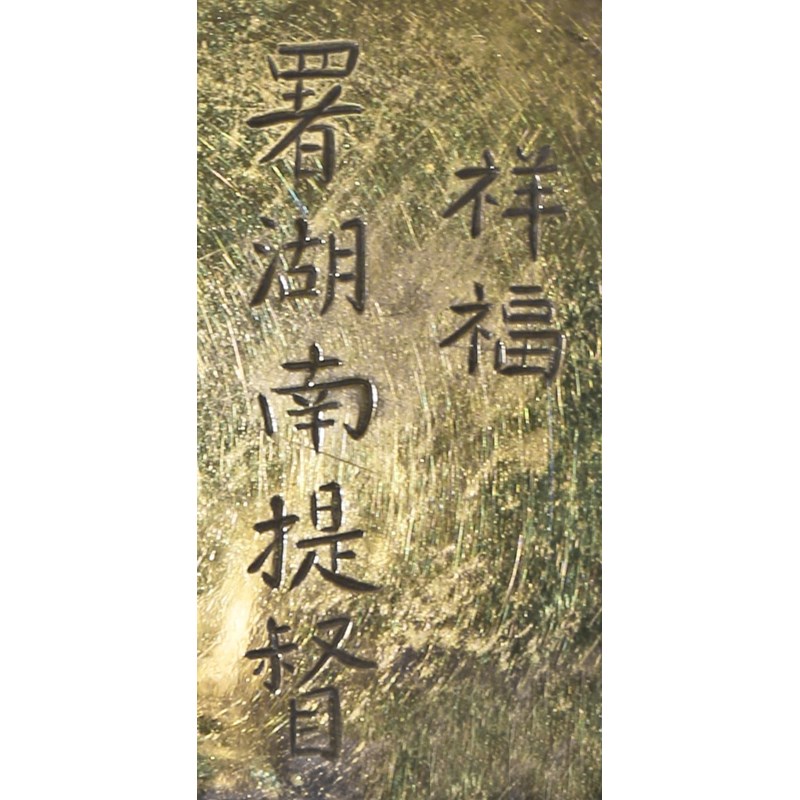 祥福
署湖南提督